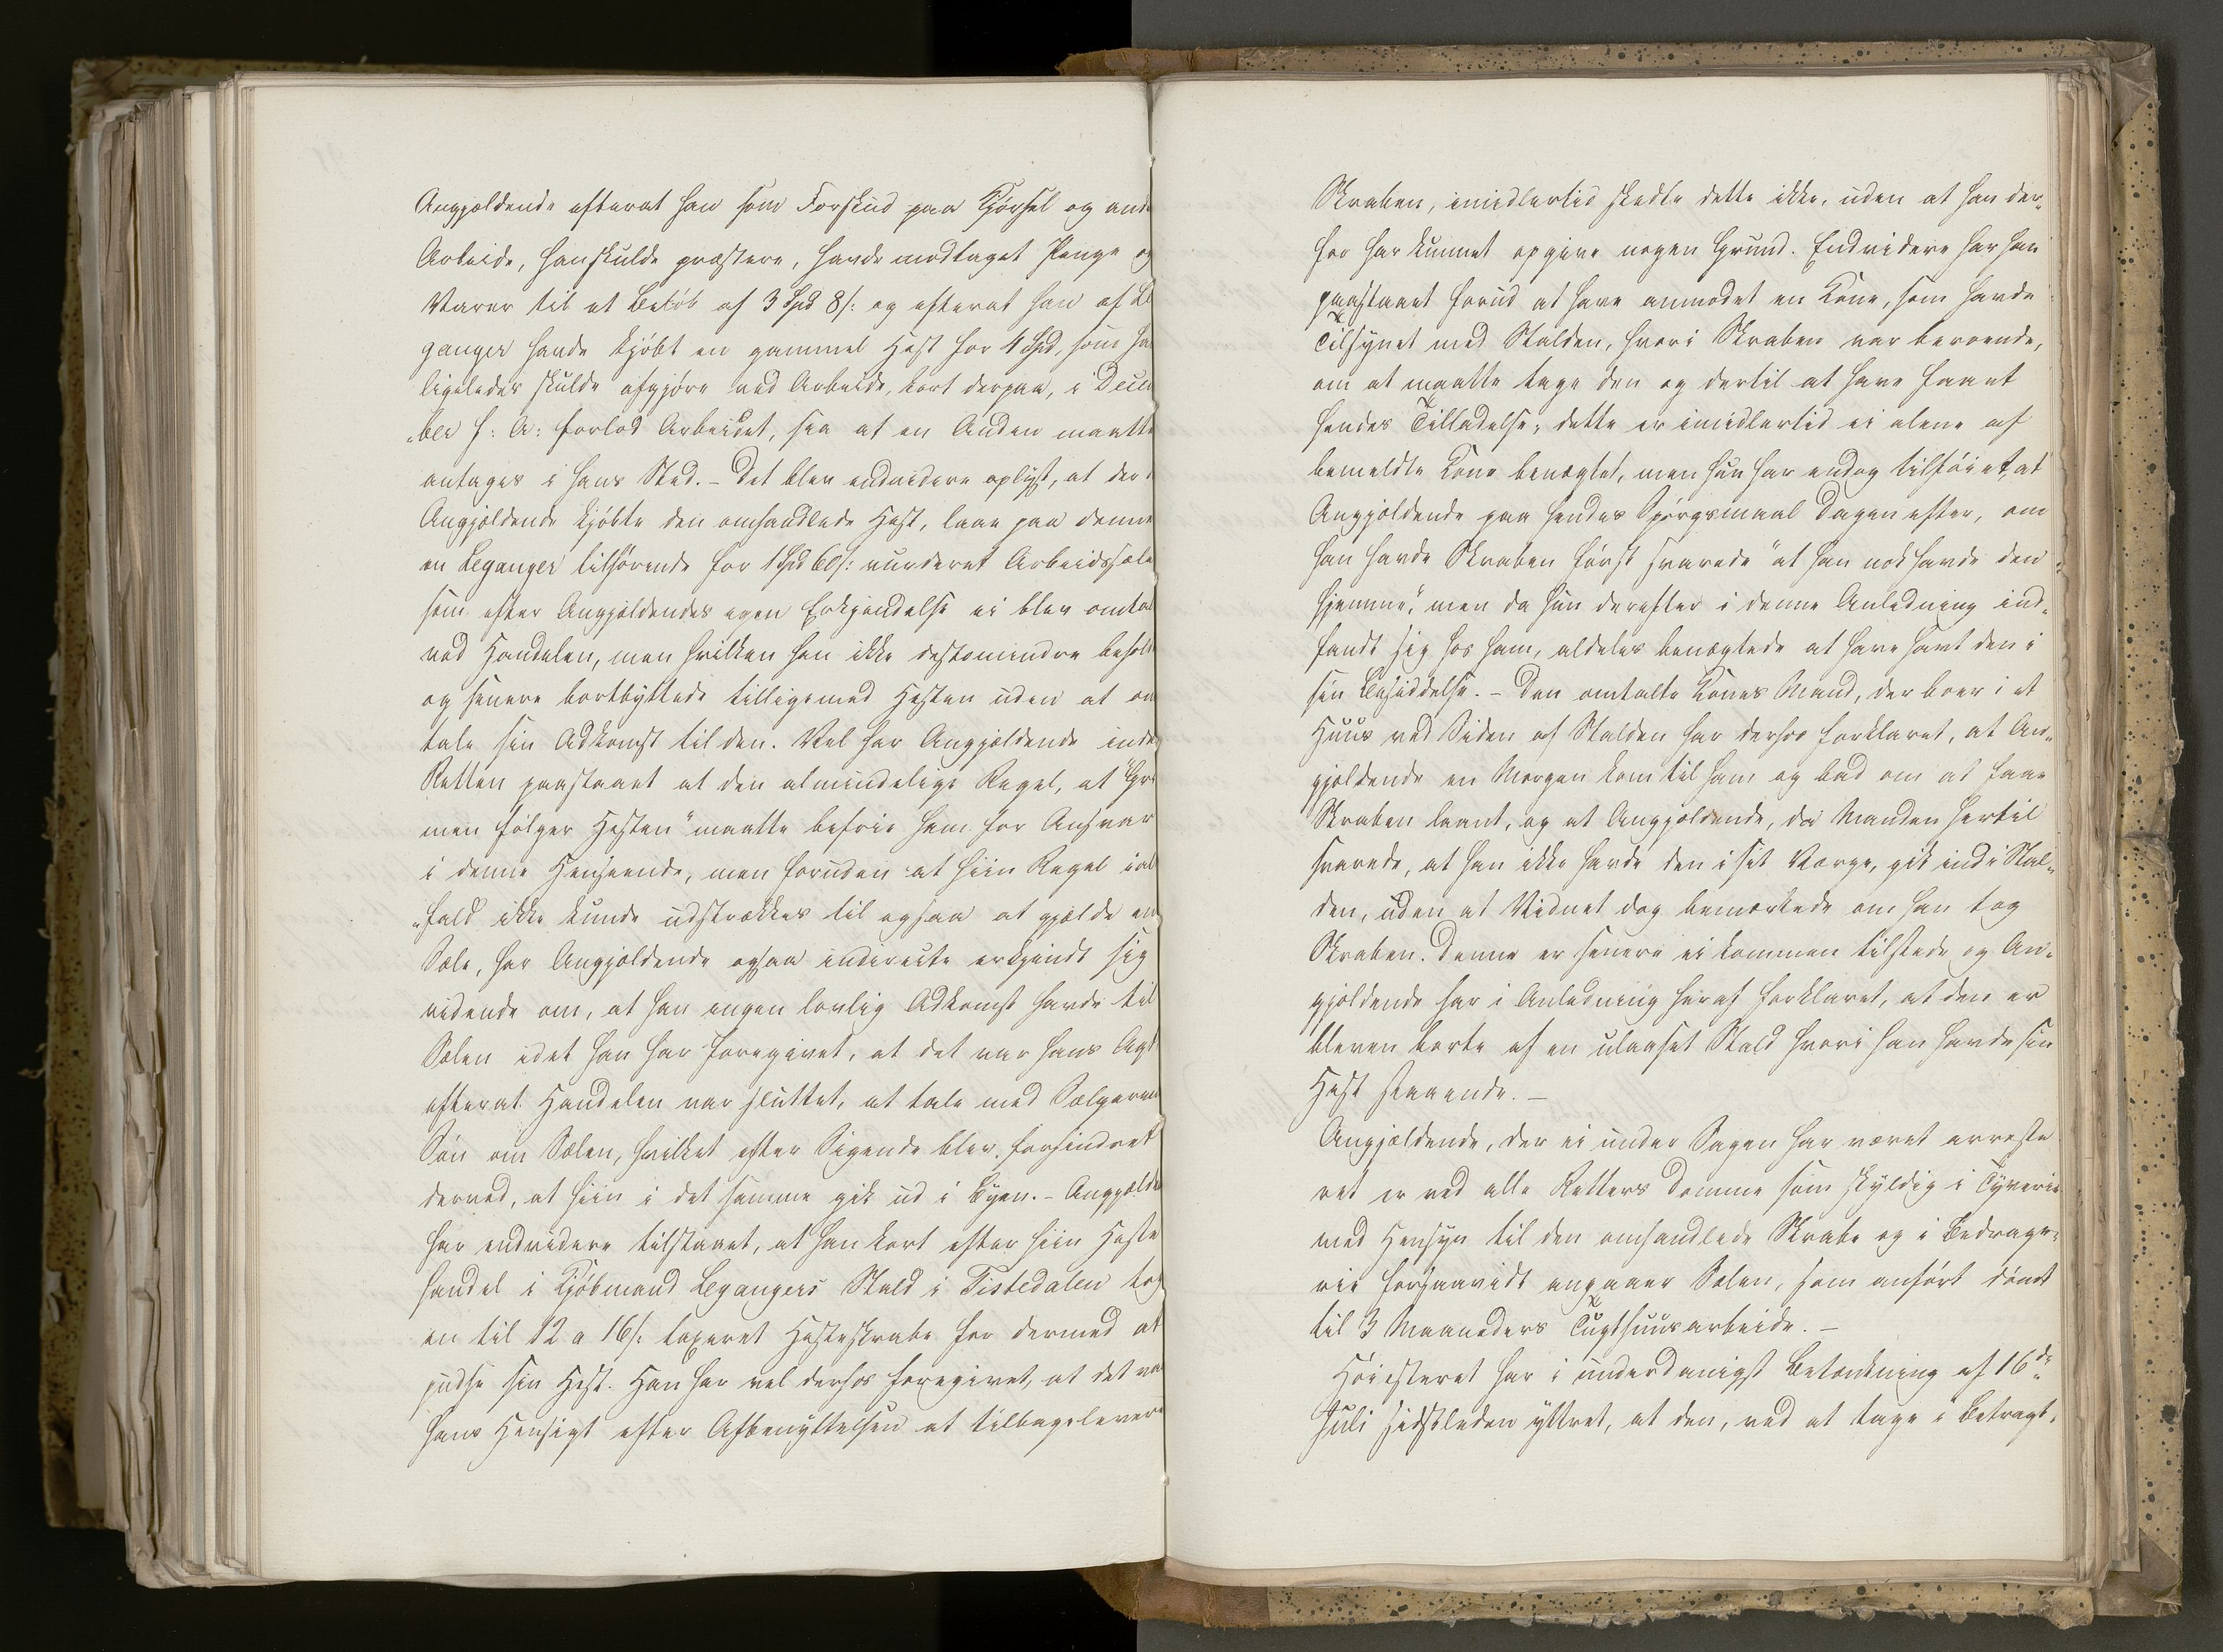 Angjældende efterat han som Forskud paa Kjørsel og and
Arbeide, han skulde præstere, havde modtaget Penge og
Varer til et Beløb af 3 Spd 8 s: og efterat han af Le
ganger havde kjøbt en gammel Hest for 4 Spd, som ha
ligeledes skulde afgjøre ved Arbeide, kort derpaa, i Decem
„ber f: A: forlod Arbeidet, saa at en Anden maatte
antages i hans Sted. – Det blev endvidere oplyst, at der
Angjældende kjøbte den omhandlede Hest, laae paa denne
en Leganger tilhørende for 1 Spd 60 s: vurderet Arbeidssele
som efter Angjældendes egen Erkjendelse ei blev omtal
ved Handelen, men hvilken han ikke destomindre behold
og senere bortbyttede tilligemed Hesten uden at om
tale sin Adkomst til den. Vel har Angjældende inde
Retten paastaaet at den almindelige Regel, at "Gri
men følger Hesten" maatte befrie ham for Ansvar
i denne Henseende, men foruden at hiin Regel ial
„fald ikke kunde udstrækkes til ogsaa at gjælde en
Sele, har Angjældende ogsaa indirecte erkjendt sig
vidende om, at han ingen lovlig Adkomst havde til
Selen idet han har foregivet, at det var hans Agt
efterat Handelen var sluttet, at tale med Sælgeren
Søn om Selen, hvilket efter Sigende blev forhindret
derved, at hiin i det samme gik ud i Byen. – Angjælde
har endvidere tilstaaet, at han kort efter hiin Heste
handel i Kjøbmand Legangers Stald i Tistedalen tog
en til 12 a 16 s. taxeret Hesteskrabe for dermed at
pudse sin Hest. Han har vel derhos foregivet, at det va
hans Hensigt efter Afbenyttelsen at tilbagelevere
Skraben, imidlertid skedte dette ikke, uden at han der„
for har kunnet opgive nogen Grund. Endvidere har han
paastaaet forud at have anmodet en Kone, som havde
Tilsynet med Stalden, hvori Skraben var beroende,
om at maatte tage den og dertil at have faaet
hendes Tilladelse; dette er imidlertid ei alene af
bemeldte Kone benægtet, men hun har endog tilføiet, at
Angjældende paa hendes Spørgsmaal Dagen efter, om
han havde Skraben først svarede "at han nok havde den
hjemme", men da hun derefter i denne Anledning ind„
fandt sig hos ham, aldeles benægtede at have havt den i
sin Besiddelse. – Den omtalte Kones Mand, der boer i et
Huus ved Siden af Stalden har derhos forklaret, at An„
gjældende en Morgen kom til ham og bad om at faae
Skraben laant, og at Angjældende, da Manden hertil
svarede, at han ikke havde den i sit Værge, gik ind i Stal„
den, uden at Vidnet dog bemærkede om han tog
Skraben. Denne er senere ei kommen tilstede og An„
gjældende har i Anledning heraf forklaret, at den er
bleven borte af en ulaaset Stald hvori han havde sin
Hest staaende. –
Angjældende, der ei under Sagen har været arreste
ret er ved alle Retters Domme som skyldig i Tyverie
med Hensyn til den omhandlede Skrabe og i Bedrage„
rie forsaavidt angaaer Selen, som anført dømt
til 3 Maaneders Tugthuusarbeide. –
Høiesteret har i underdanigst Betænkning af 16de
Juli sidstleden yttret, at den, ved at tage i Betragt„